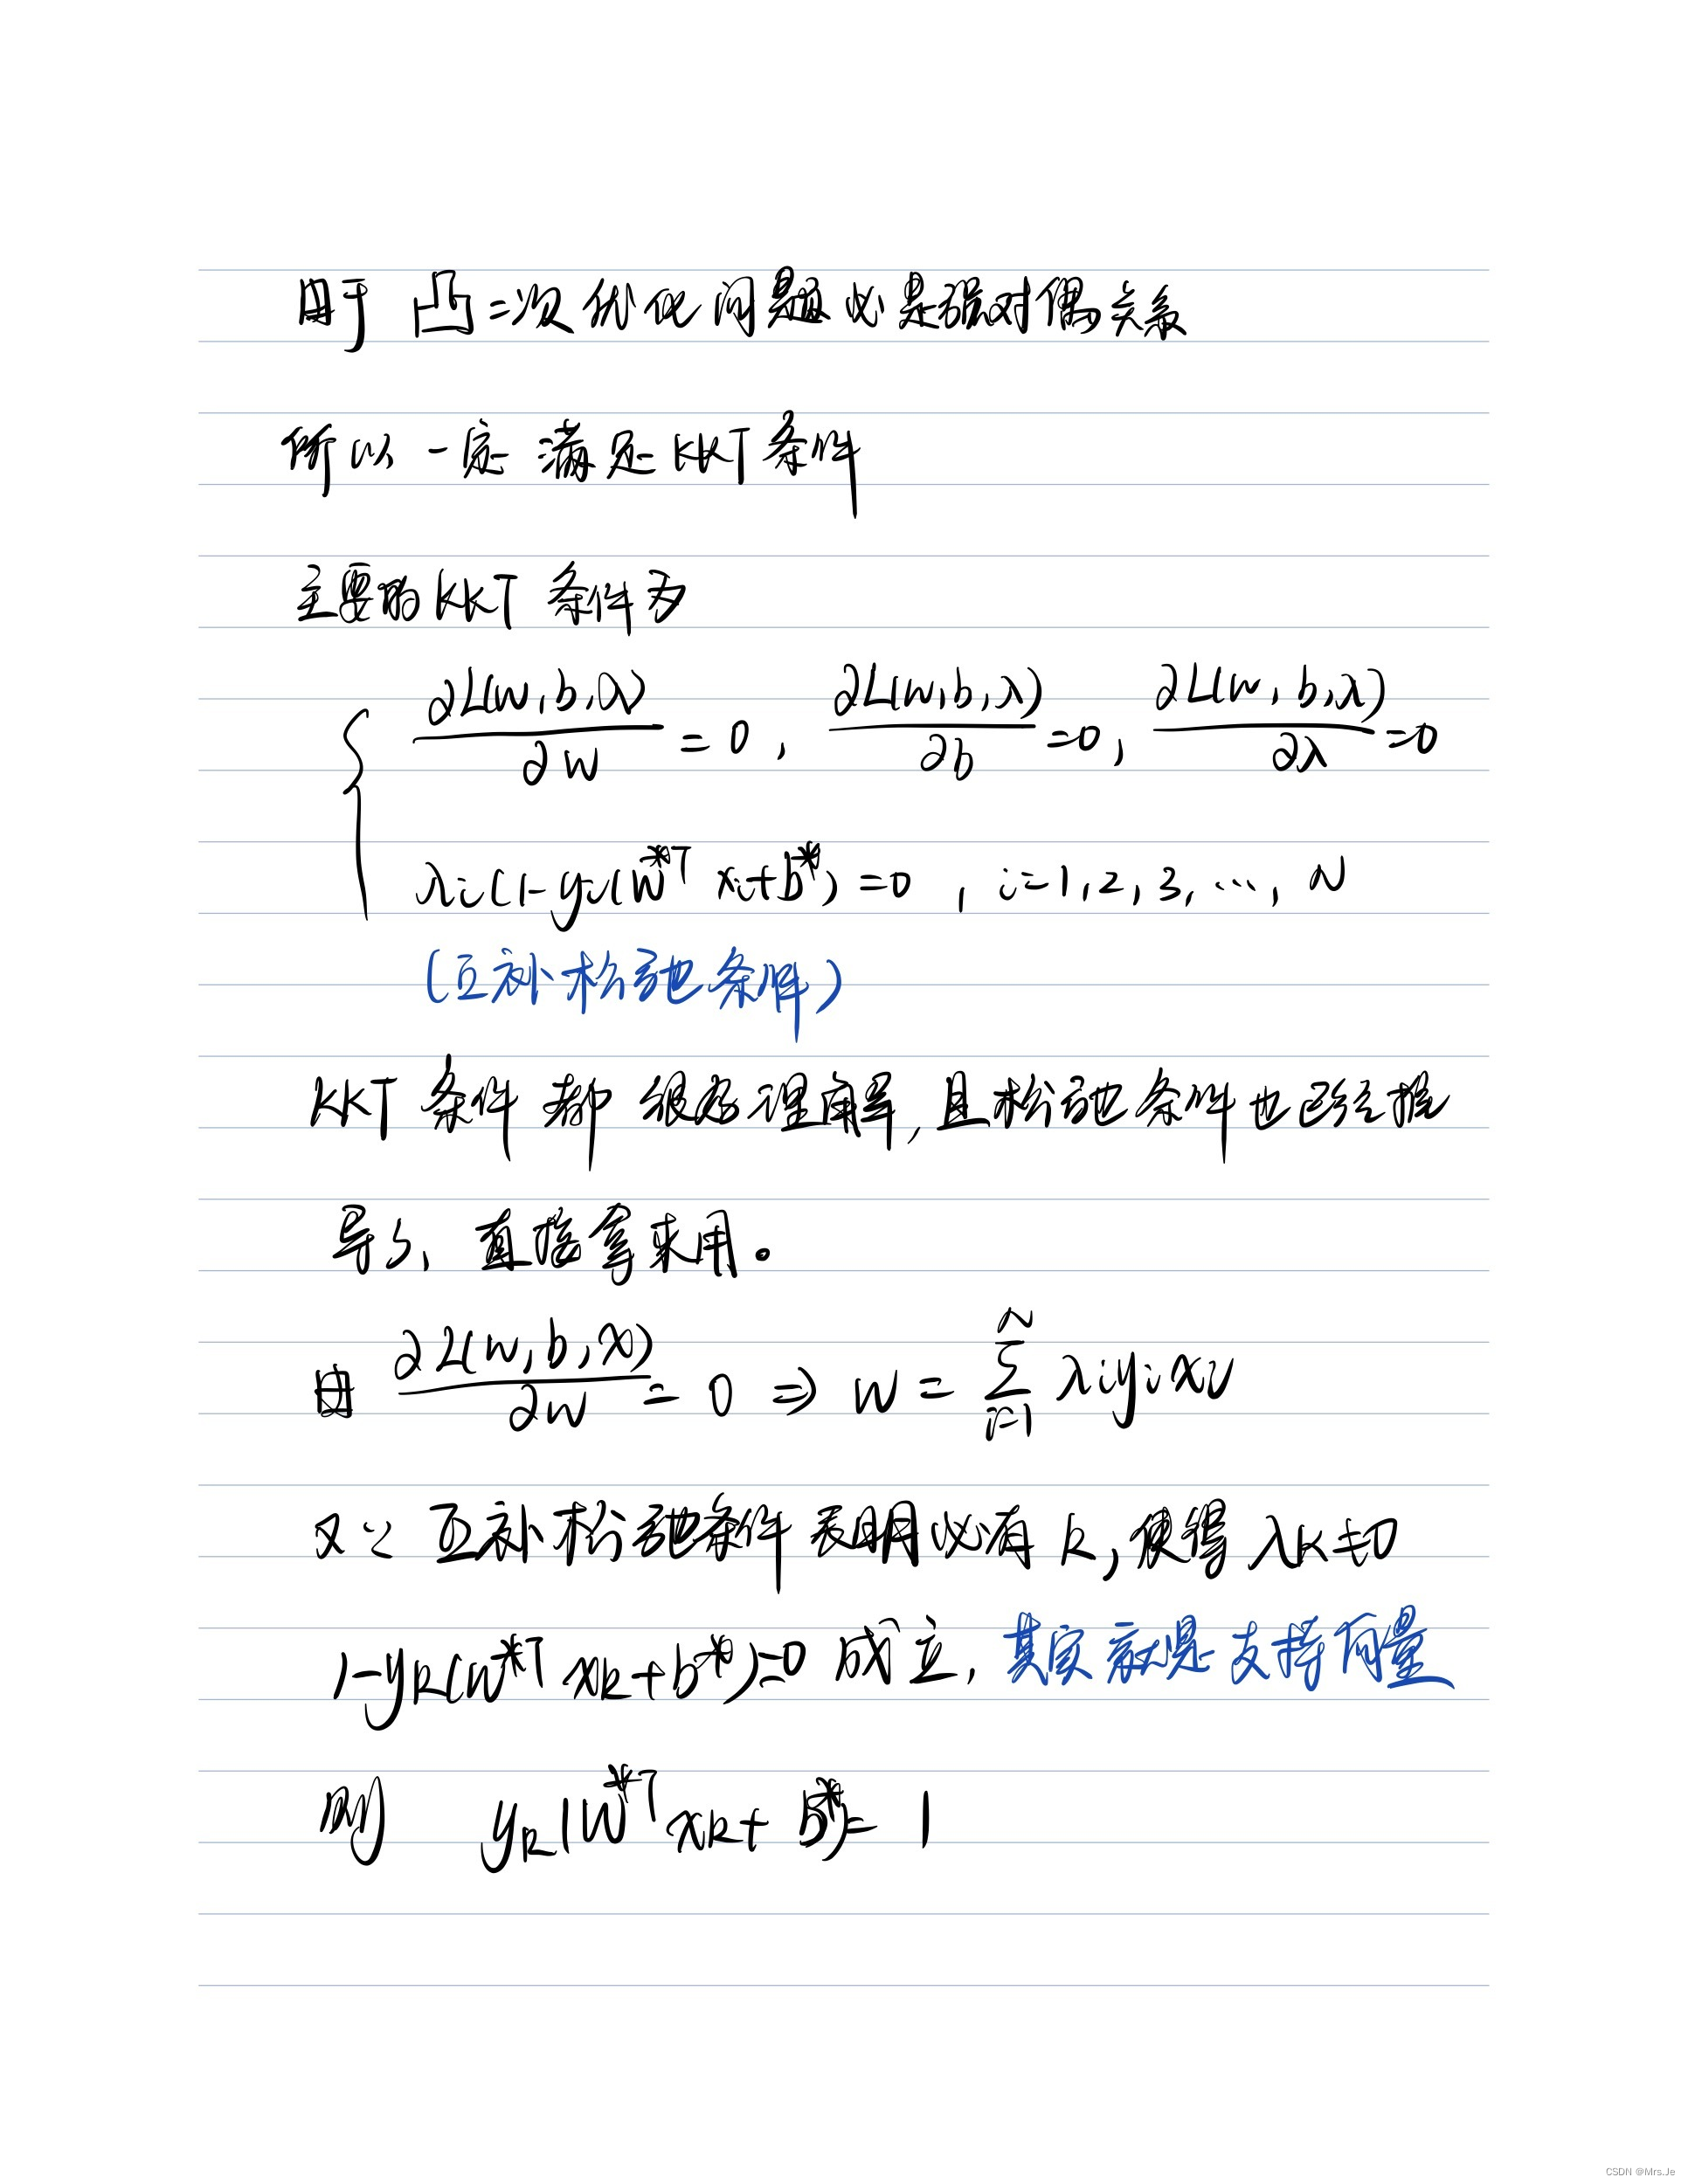 由于 凸二次优化问题必是强对偶关系
所以一定满足KKT条件
主要的KKT条件为
∂L(w,b,λ)/∂w = 0, ∂L(w,b,λ)/∂b = 0, ∂L(w,b,λ)/∂λ = 0
λi(1-yi(w*ᵀxi+b*) = 0, i=1,2,3,...,N
(互补松弛条件)
KKT条件都很好理解,且松弛条件也已经推
导了,直接拿来用。
由 ∂L(w,b,λ)/∂w = 0 ⇒ w = ∑_{i=1}^{N} λiyixi
又∵ 互补松弛条件表明必有k,使得λk≠0
1-yk(w*ᵀxk+b*)=0 成立,其实就是支持向量
则 yk(w*ᵀxk+b*)=1
CSDN @Mrs.Je